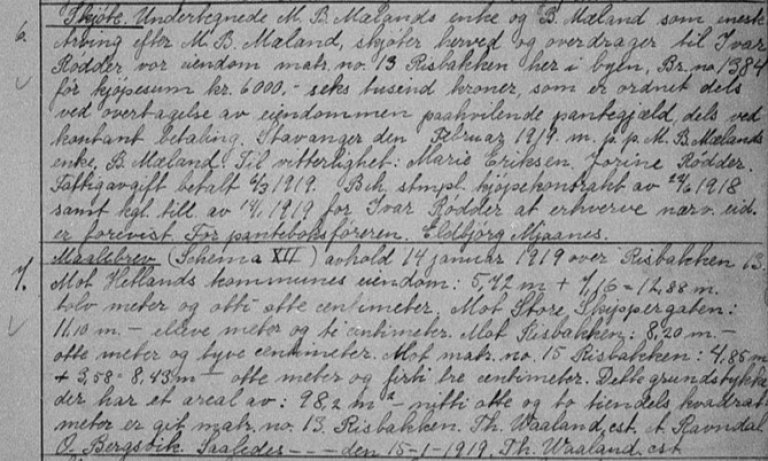 6. Skjøte. Undertegnede M. B. Mælands enke og B. Mæland som eneste
Arving efter M. B. Mæland, skjøter herved og overdrager til Ivar
Rødder vor eiendom matr. no. 13 Risbakken her i byen, Br. no. 1384
for kjøpesum kr. 6000,- seks tusend kroner, som er ordnet dels
ved overtagelse av eiendommen paahvilende pantegjæld, dels ved
kontant betaling. Stavanger den Februar 1919. m. p. p. M. B. Mælands
enke, B. Mæland. Til vitterlighet: Marie Eriksen. Jorine Rødder.
Fattigavgift betalt 6/3 1919. Beh. stmpl. kjøpekontrakt av 1918
samt kgl. till. av 1919 for Ivar Rødder at erhverve nærv. eid.
er forevist. For panteboksføreren. Eldbjørg Mjaanes.
7. Maalebrev (Schema XII) avhold 14 januar 1919 over Risbakken 13.
Mot Hetlands kommunes eiendom: 5,72 m + 7,16 = 12,88 m.
tolv meter og otti otte centimeter. Mot Store Skippergaten:
11,10 m. - elleve meter og ti centimeter. Mot Risbakken: 8,20 m. -
otte meter og tyve centimeter. Mot matr. no. 15 Risbakken: 4,85 m
+ 3,58 = 8,43 m - otte meter og firti tre centimeter. Dette grundstykke
der har et areal av: 98,2 m² - nitti otte og to tiendels kvadrat
meter er git matr. no. 13. Risbakken. Th. Waaland, cst. A. Ravndal
O. Bergsvik. Saaledes - - - den 15-1-1919. Th. Waaland. cst.